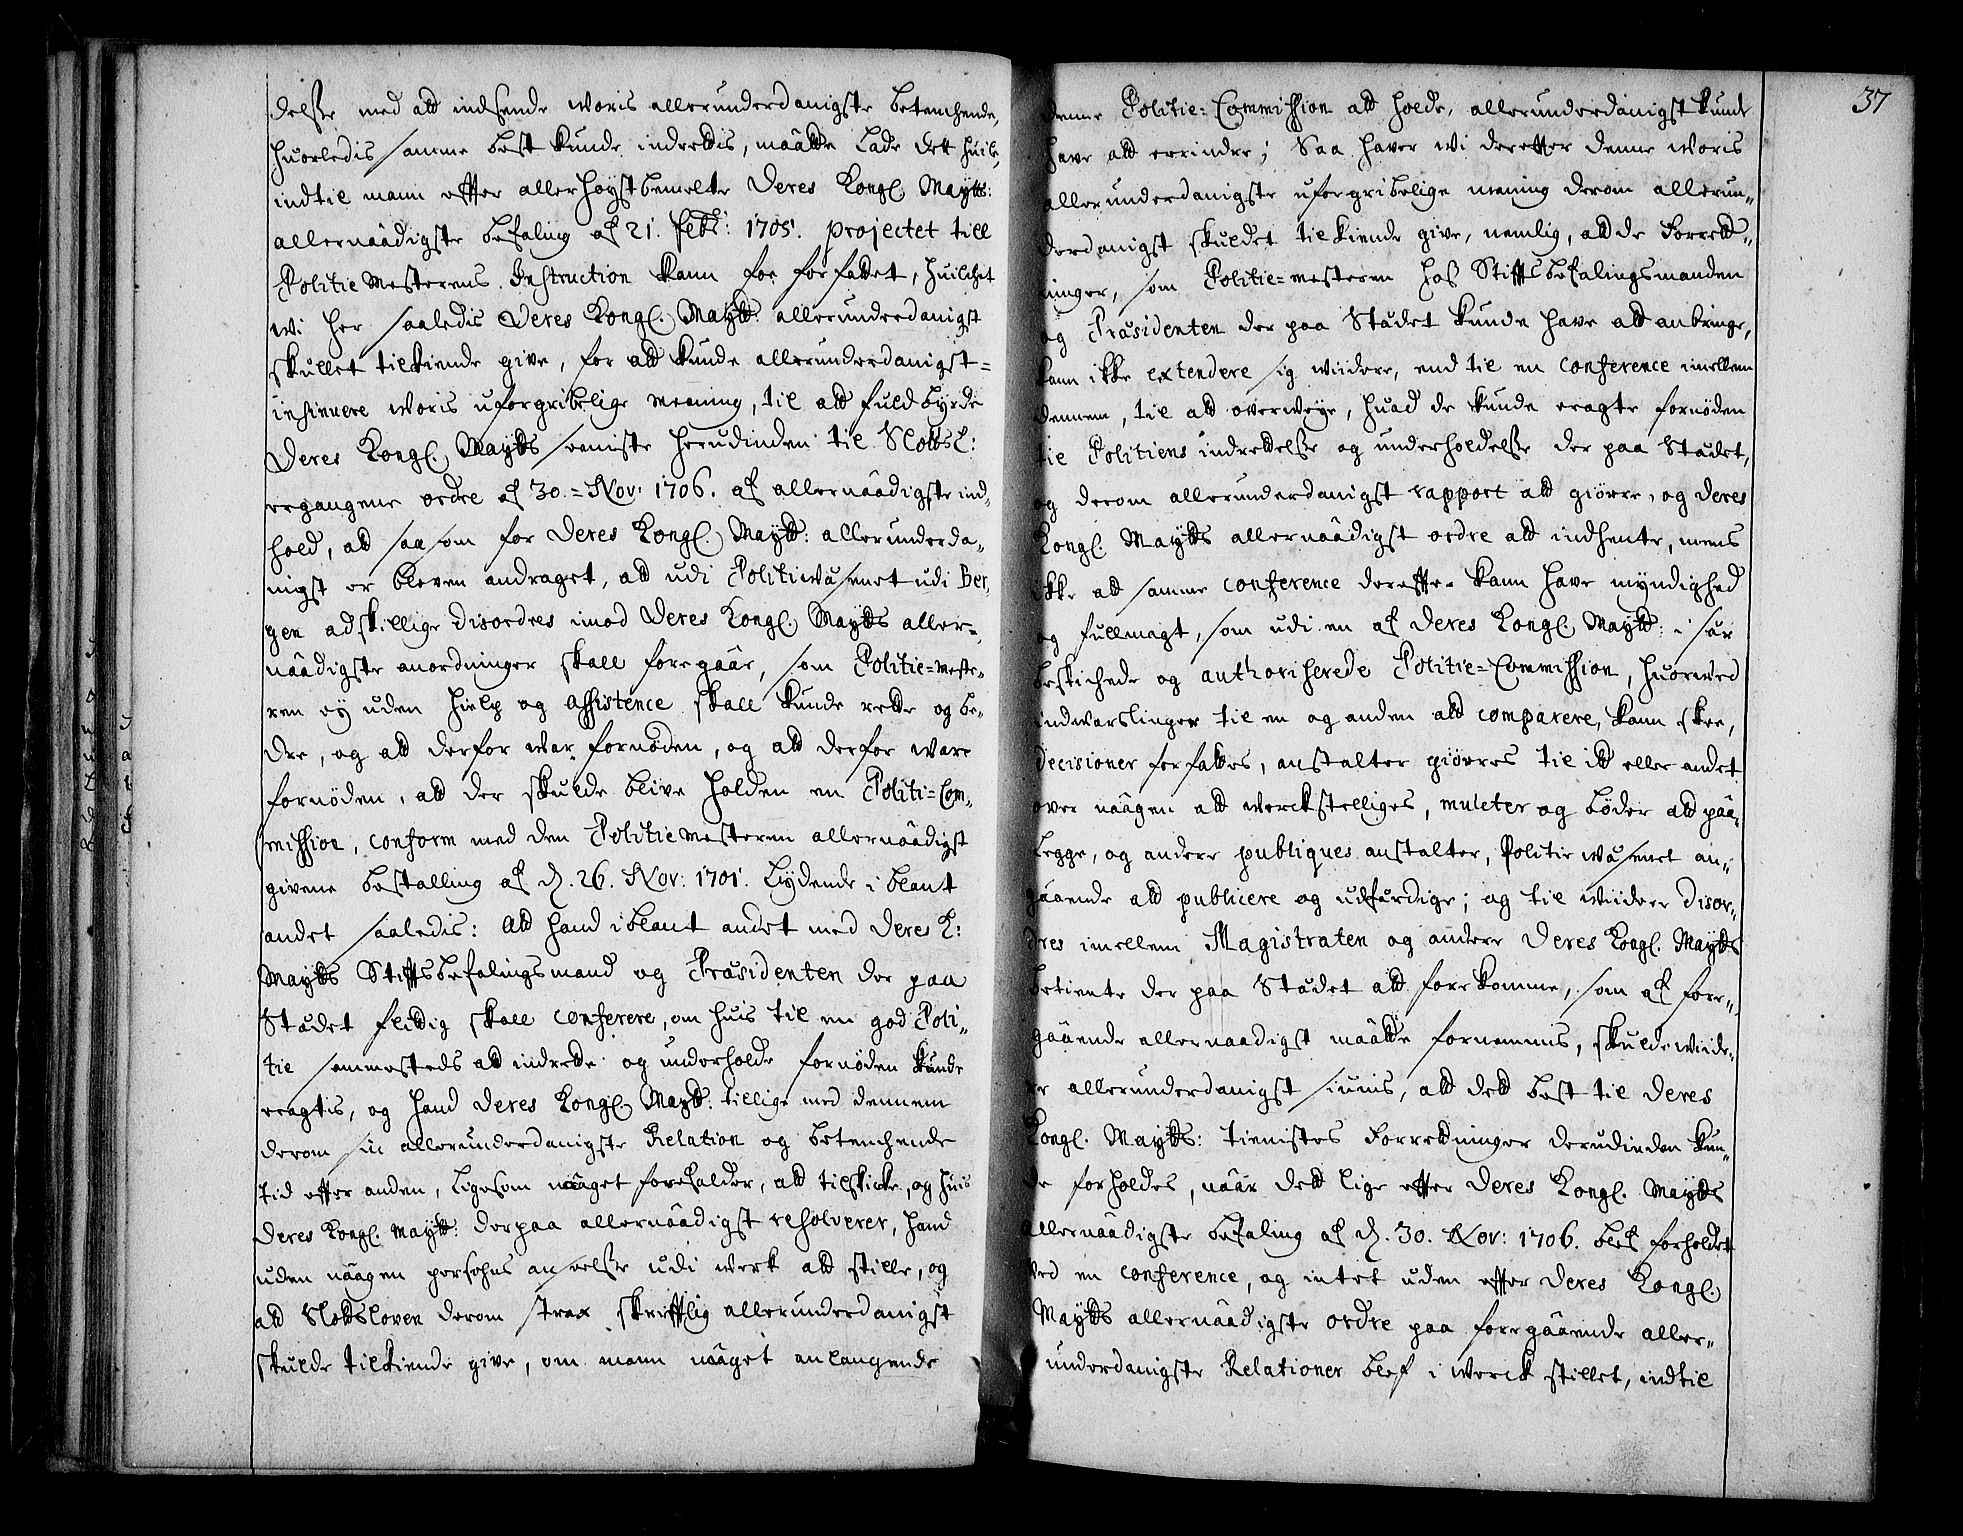 delse med att indsende woris allerunderdanigste betenchende,
huorledis samme best kunde indrettis, måtte lade dett huile,
indtil mann effter allerhøystbemelte Deres Kongl. Maytts:
allernaadigste befaling af 21. Febr: 1705. projectet till
Politiemesterens Instruction kann faa forfattet, huilchet
wi her saaledis Deres Kongl. Maytt: allerunderdanigst
skullet tilkiende give, for att kunde allerunderdanigst=
insinuere woris uforgribelige meening, til att fuldbyrde
Deres Kongl. Maytts seeniste herudinden til Slotts L:
ergangene ordre af 30. = Nov: 1706. af allernaadigste ind-
hold, att saasom for Deres Kongl. Maytt: allerunderda-
nigst er bleven andraget, att udi Politiwæsenet udi Ber-
gen adskillige disordres imod Deres Kongl. Maytts aller-
naadigste anordninger skall foregaae, som Politie=meste-
ren ey uden hielp og assistence skall kunde rette og be-
dre, og att derfor war fornöden, og att derfor ware
fornöden, att der skulde blive holden en Politi=Com-
mission, conform med den Politiemesteren allernaadigst
givene bestalling af d. 26. Nov: 1701. Lydende iblant
andet saaledis: Att hand iblant andet med Deres K:
Maytts Stifftsbefalingsmand og Præsidenten der paa
Stædet flittig skall conferere, om huis til en god Poli-
tie sammesteds att indrette og underholde fornøden kunde
eragtis, og hand Deres Kongl. Maytt: tillige med dennem
derom sin allerunderdanigste Relation og betenchende
tid effter anden, ligesom naaget forefalder, att tilskicke, og huis
Deres Kongl. Maytt: derpaa allernaadigst resolverer, hand
uden naagen persohns anseelse udi werk att stille, og
att Slottsloven derom strax skrifftlig allerunderdanigst
skulde tilkiende give, om mann naaget anlangende
37
denne Politie=Commission att holde, allerunderdanigst kunde
have att erindre; Saa haver wi dereffter denne woris
allerunderdanigste uforgribelige mening derom allerun-
derdanigst skuldet tilkiende give, nemlig, att de Forrett-
ninger, som Politie=mesteren hos Stifftsbefalingsmanden
og Præsidenten der paa Stædet kunde have att anbringe,
kann ikke extendere sig widere, end til en conference imellem
dennem, til att overweye, huad de kunde eragte fornöden
til Politiens indrettelse og underholdelse der paa Stædet,
og derom allerunderdanigst rapport att giörre, og Deres
Kongl. Maytts allernaadigst ordre att indhente, mens
ikke att samme conference dereffter kann have myndighed
og fullmagt, som udi en af Deres Kongl. Maytt: i sær
beskichede og authoriserede Politie=Commission, huorwed
indwarslinger til en og anden att comparere, kann skee,
decisioner forfattes, anstalter giörres til itt eller andet
over naagen att werckstelliges, mulcter og böder att paa-
legge, og andere publiques anstalter, Politiewæsenet an-
gaaende att publicere og udfærdige; og til widere disor-
dres imellem Magistraten og andere Deres Kongl. Maytts
betiente der paa Stædet att forekomme, som af fore-
gaaende allernaadigst maatte fornemmis, skulde wide-
re allerunderdanigst siunis, att dett best til Deres
Kongl. Maytts: tienistes Forretninger derudinden kun-
de forholdes, naar dett lige effter Deres Kongl. Maytts
allernaadigste befaling af d. 30. Nov: 1706. blef forholdet
ved en conference, og intet uden effter Deres Kongl.
Maytts allernaadigste ordre paa foregaaende aller-
underdanigste Relationer blef i werck stillet, indtil